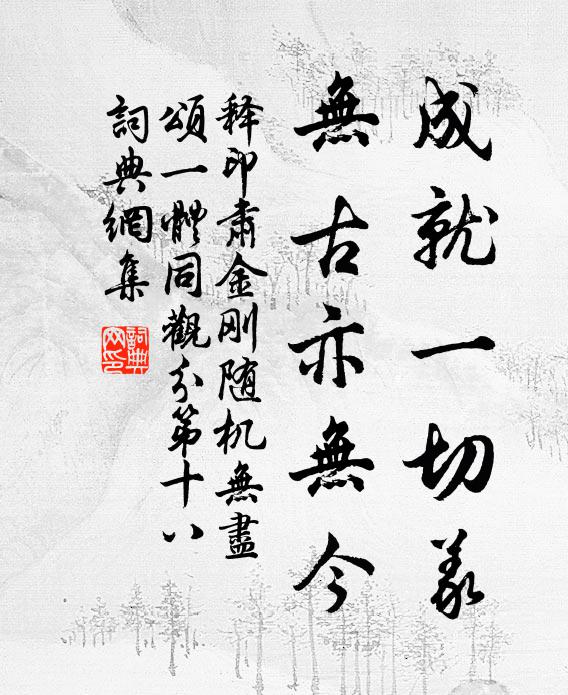 成就一切義
無古亦無今
释印肃金刚随机無盡
頌一體同觀分第十八
詞典網集